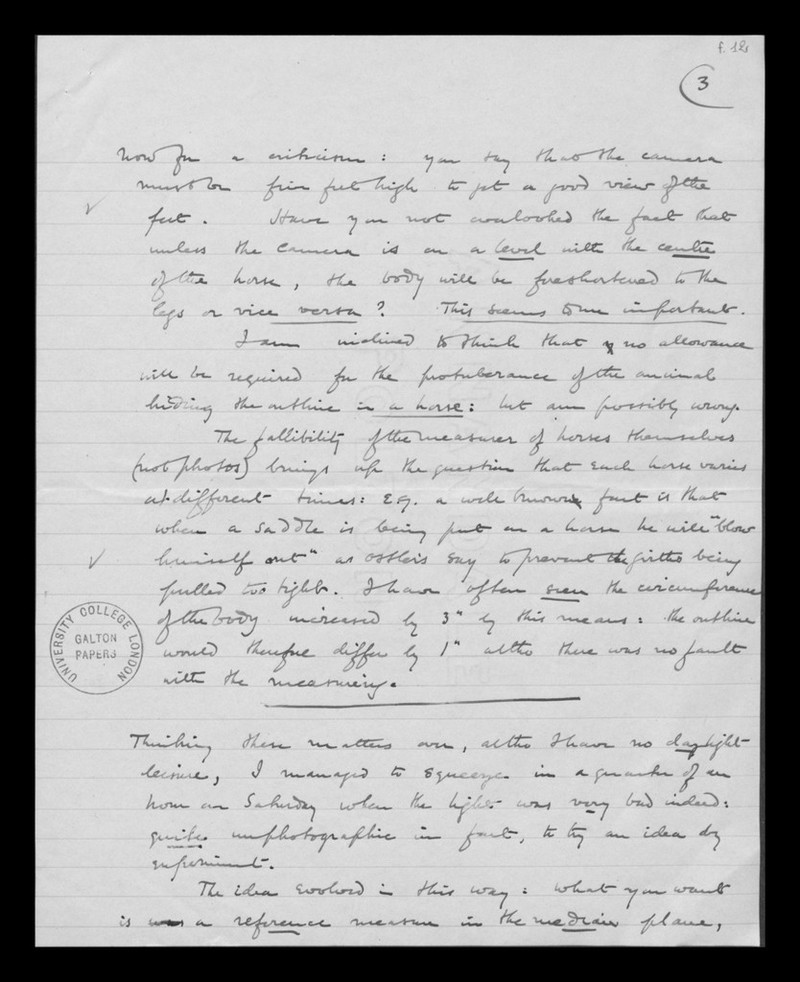 f. 12
3
Now for a criticism : you say that the camera
must be five feet high to get a good view of the
feet . Have you not overlooked the fact that
unless the camera is on a level with the centre
of the horse , the body will be foreshortened to the
legs or vice versa ? This seems to me important .
I am inclined to think that no allowance
will be required for the protuberance of the animal
hiding the outline in a horse : but am possibly wrong .
The fallibility of the measurer of horses themselves
(not photos) brings up the question that each horse varies
at different times : E.g. a well known fact is that
when a saddle is being put on a horse he will "blow
himself out" as ostlers say to prevent the girths being
pulled too tight . I have often seen the circumference
of the body increased by 3" by this means : the outline
would therefore differ by 1" altho there was no fault
with the measuring .
UNIVERSITY COLLEGE LONDON
GALTON
PAPERS
Thinking these matters over , altho I have no daylight
leisure , I managed to squeeze in a quarter of an
hour on Saturday when the light was very bad indeed :
quite unphotographic in fact , to try an idea by
experiment .
The idea evolved in this way : what you want
is a reference measure in the median plane ,